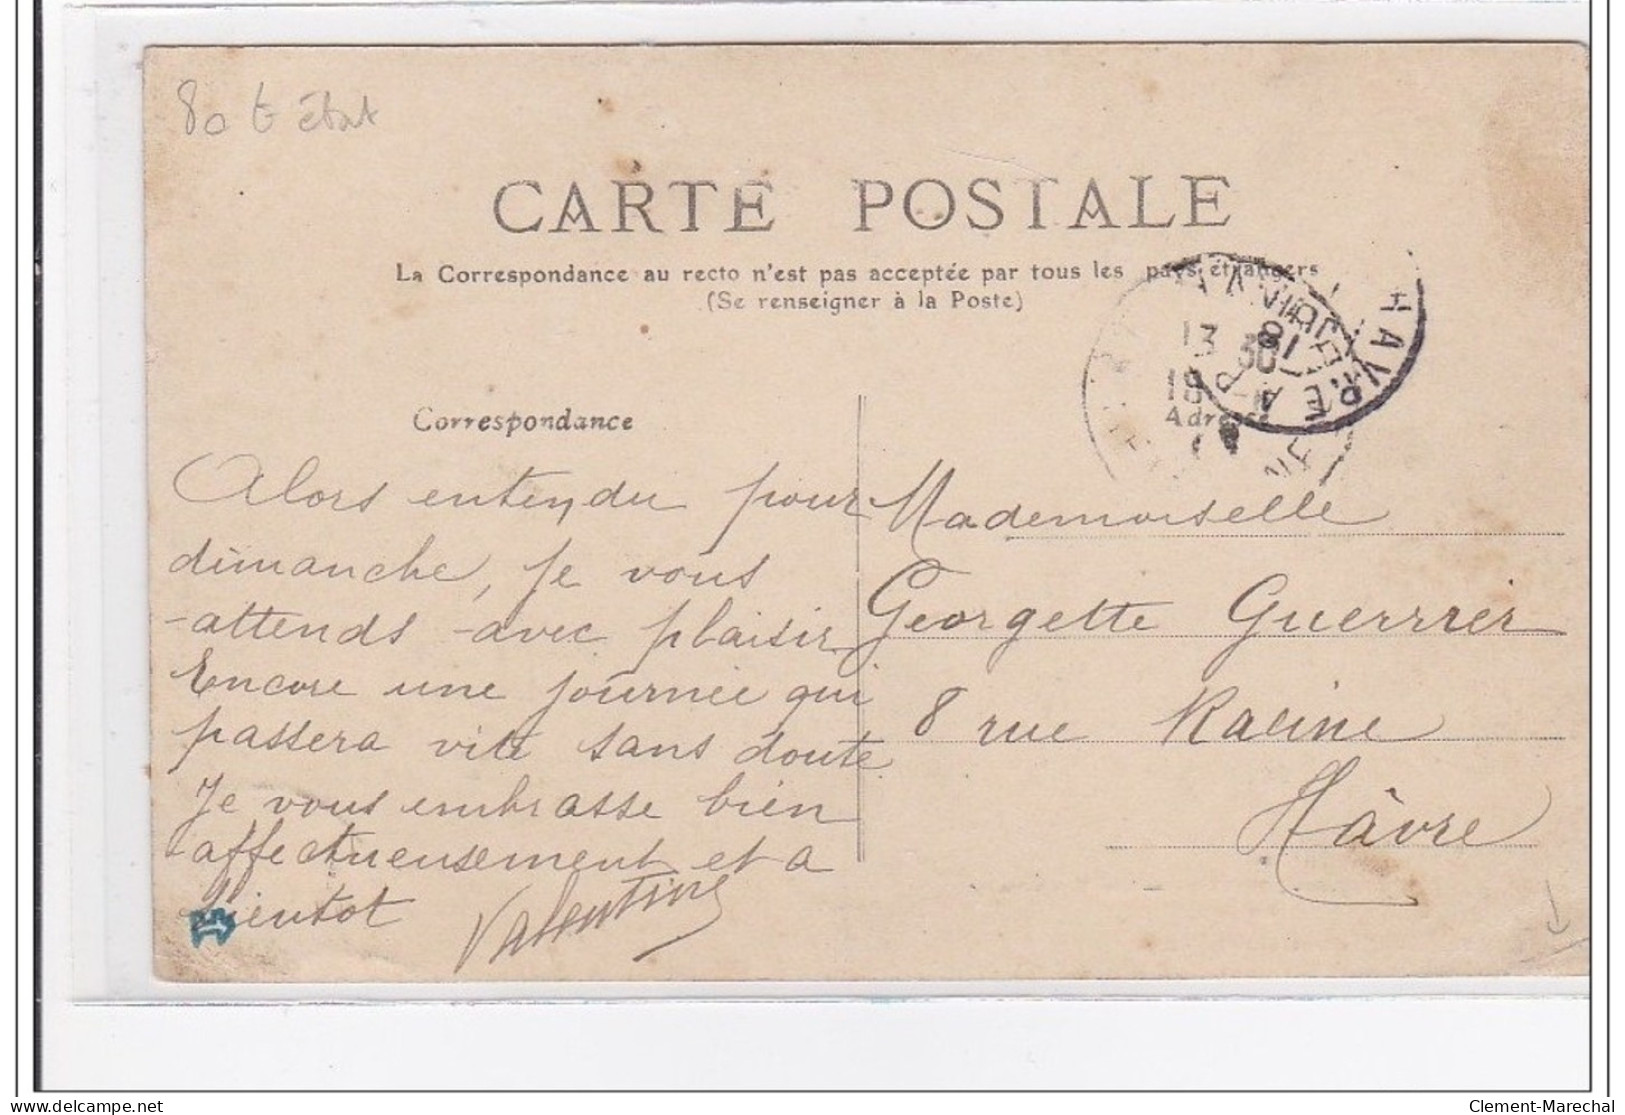 80 état
CARTE POSTALE
La Correspondance au recto n'est pas acceptée par tous les pays étrangers
(Se renseigner à la Poste)
HAVRE
13 30
18
Correspondance
Adresse
Alors entendu pour
dimanche, je vous
attends avec plaisir
Encore une journée qui
passera vite sans doute
Je vous embrasse bien
affectueusement et a
bientot Valentine
Mademoiselle
Georgette Guerrrier
8 rue Racine
Hâvre
delcampe.net
Clement-Marechal